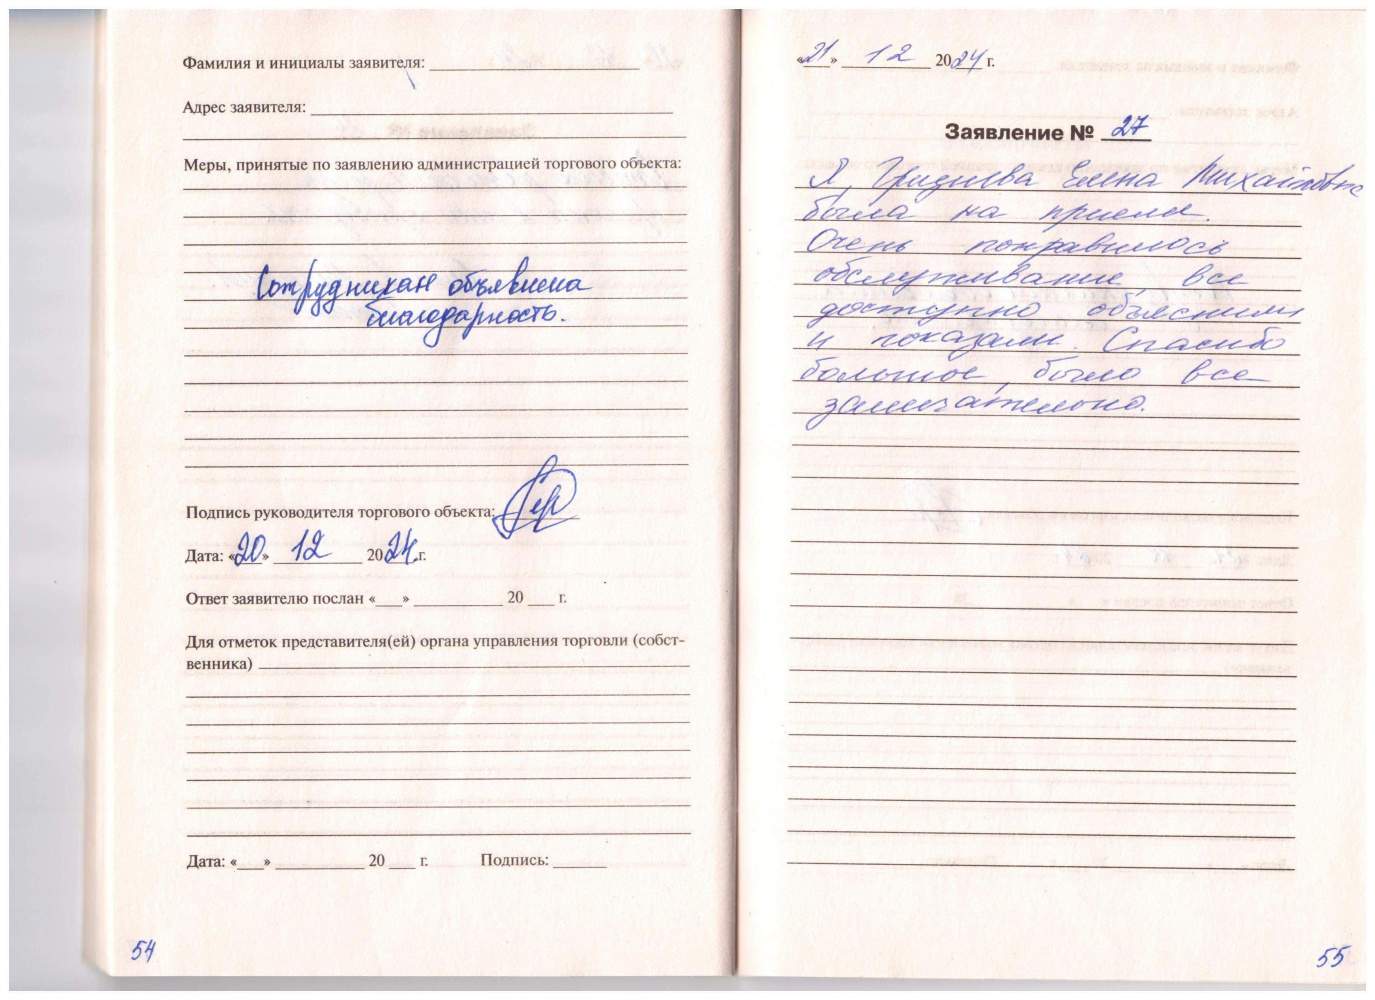 Фамилия и инициалы заявителя:
Адрес заявителя:
Меры, принятые по заявлению администрацией торгового объекта:
Сотрудникам объявлена
благодарность.
Подпись руководителя торгового объекта:
Дата: «20» 12 2024 г.
Ответ заявителю послан «___» ______ 20 ___ г.
Для отметок представителя(ей) органа управления торговли (собст-
венника)
Дата: «___» ______ 20 ___ г. Подпись:
54
«21» 12 2024 г.
Заявление № 27
Я, Гриднева Елена Михайловна
была на приеме.
Очень понравилось
обслуживание, все
доступно объяснили
и показали. Спасибо
большое, было все
замечательно.
55